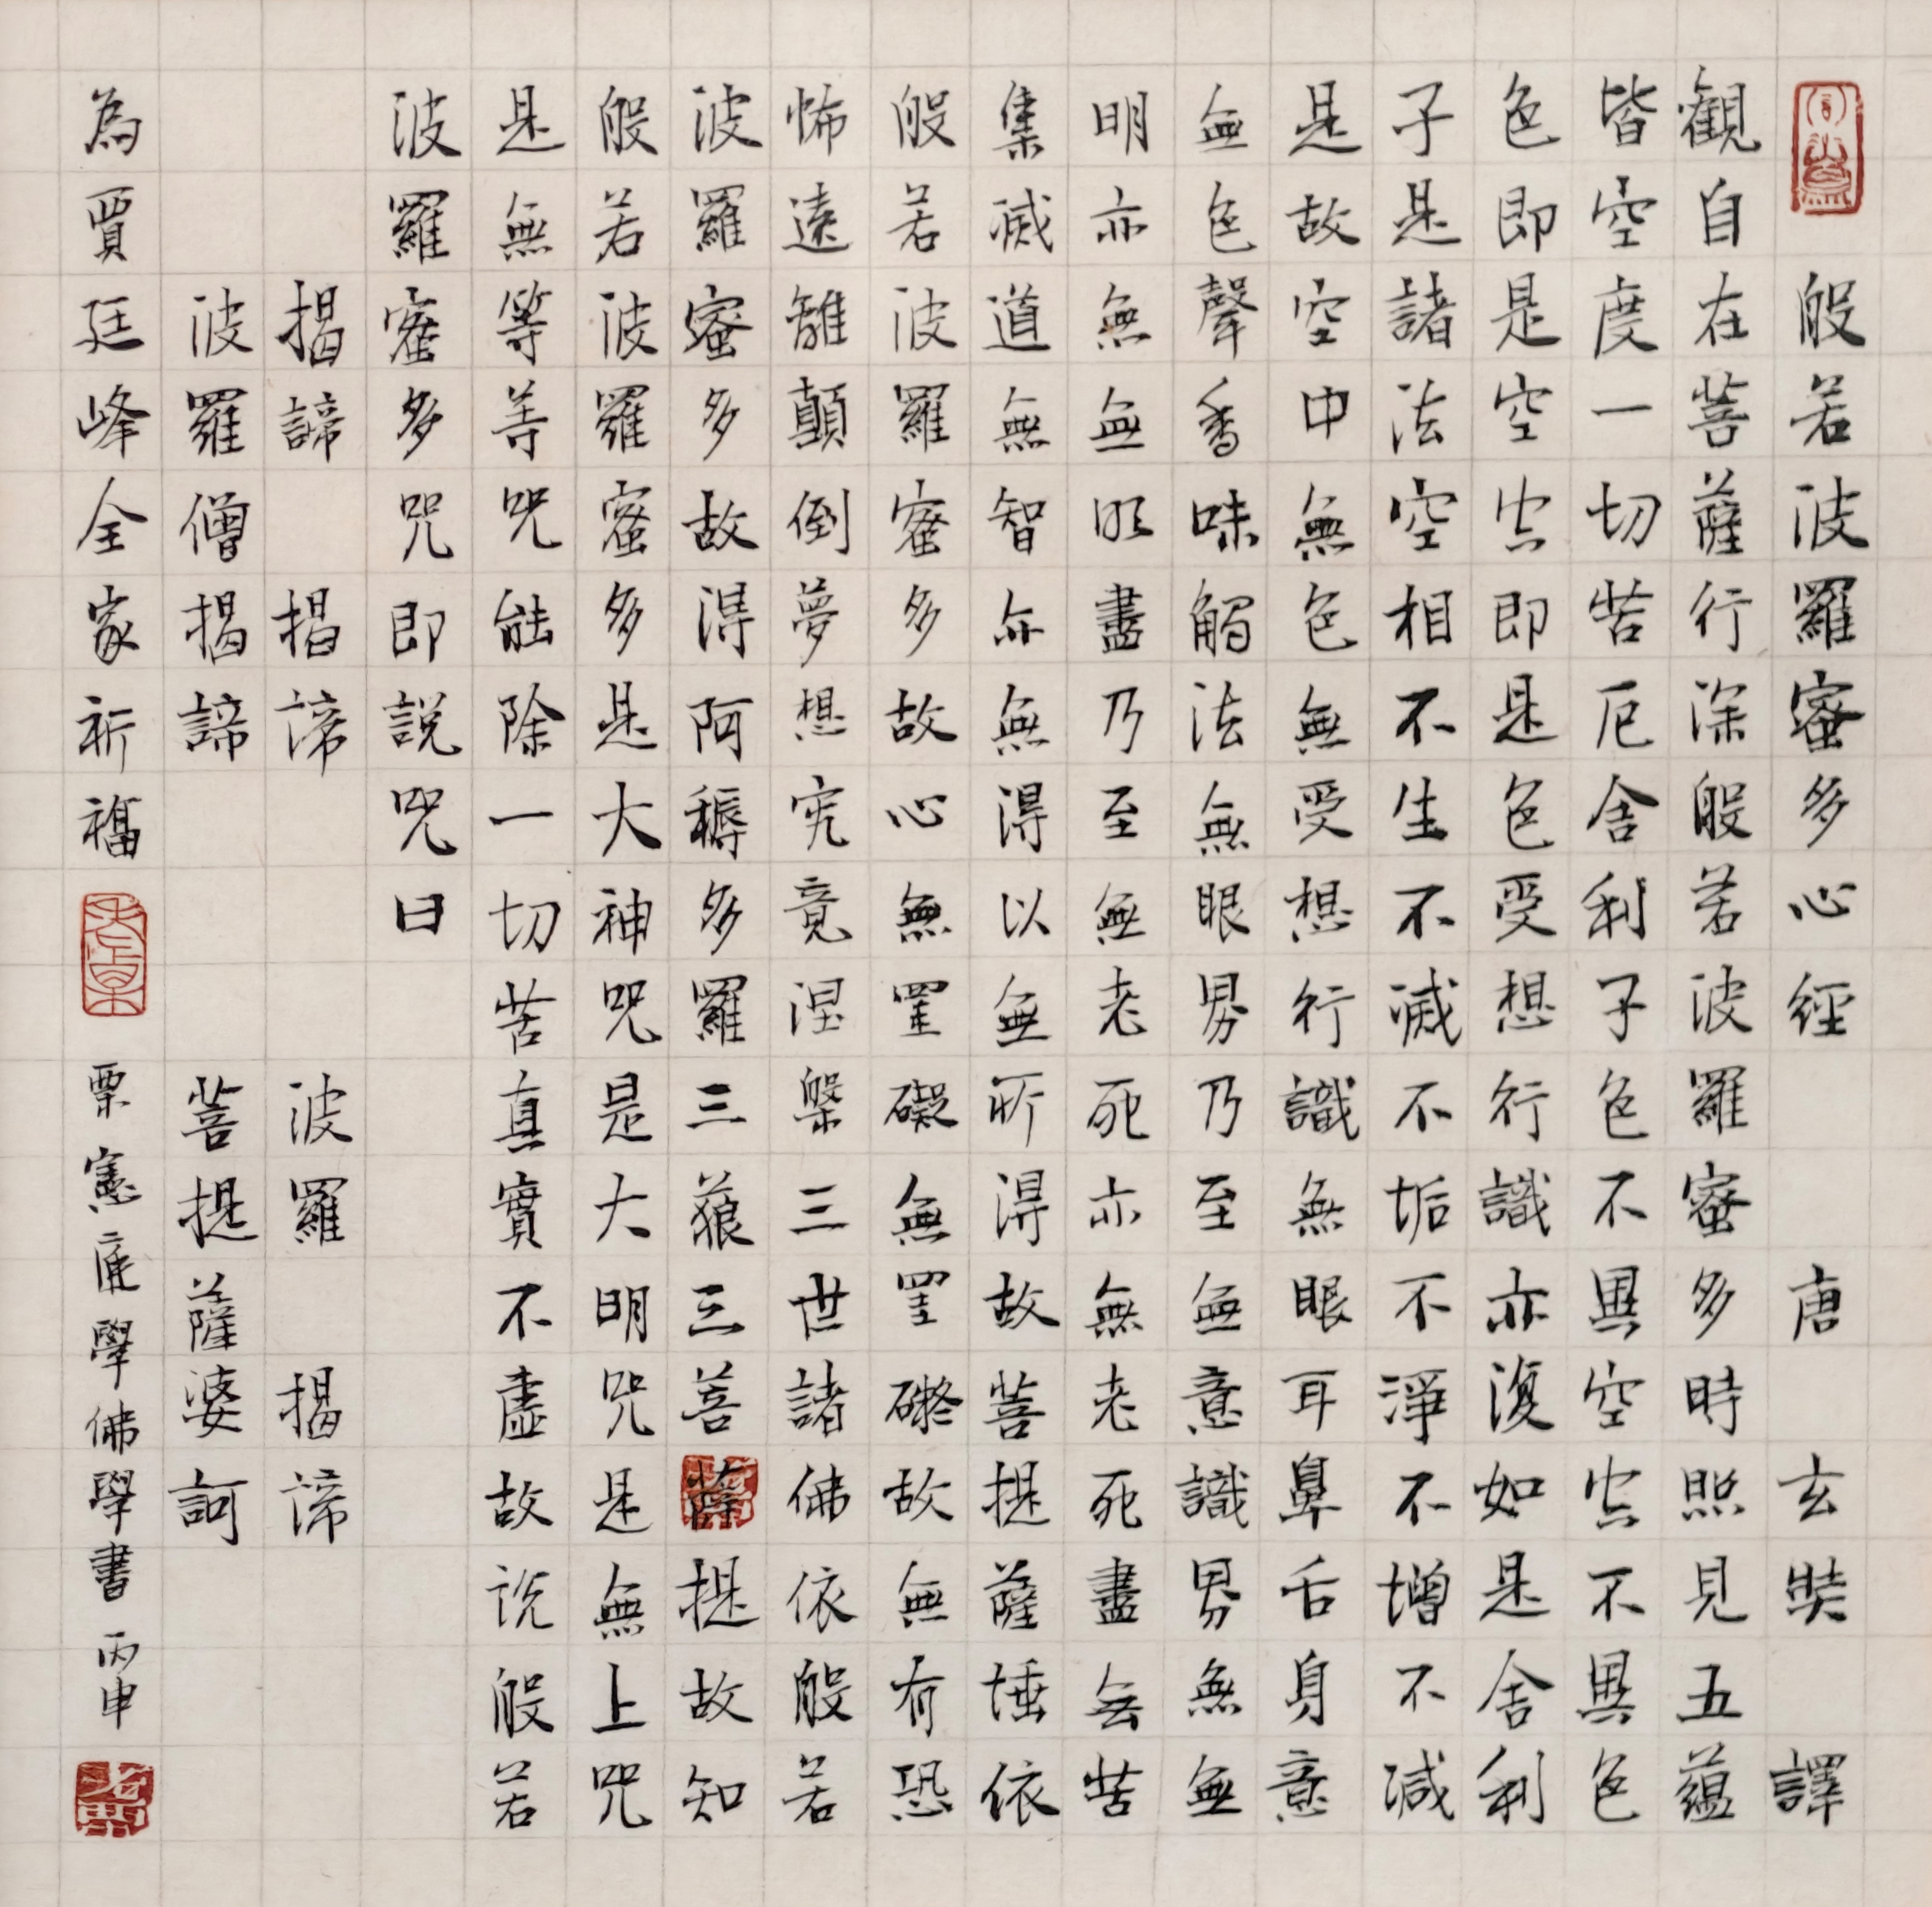 般若波羅蜜多心經 唐 玄奘 譯
觀自在菩薩行深般若波羅蜜多時照見五蘊
皆空度一切苦厄舍利子色不異空空不異色
色即是空空即是色受想行識亦復如是舍利
子是諸法空相不生不滅不垢不淨不增不減
是故空中無色無受想行識無眼耳鼻舌身意
無色聲香味觸法無眼界乃至無意識界無無
明亦無無明盡乃至無老死亦無老死盡無苦
集滅道無智亦無得以無所得故菩提薩埵依
般若波羅蜜多故心無罣礙無罣礙故無有恐
怖遠離顛倒夢想究竟涅槃三世諸佛依般若
波羅蜜多故得阿耨多羅三藐三菩薩提故知
般若波羅蜜多是大神咒是大明咒是無上咒
是無等等咒能除一切苦真實不虛故說般若
波羅蜜多咒即說咒曰
揭諦 揭諦 波羅 揭諦
波羅僧揭諦 菩提薩婆訶
為賈廷峰全家祈福 栗憲庭學佛學書 丙申